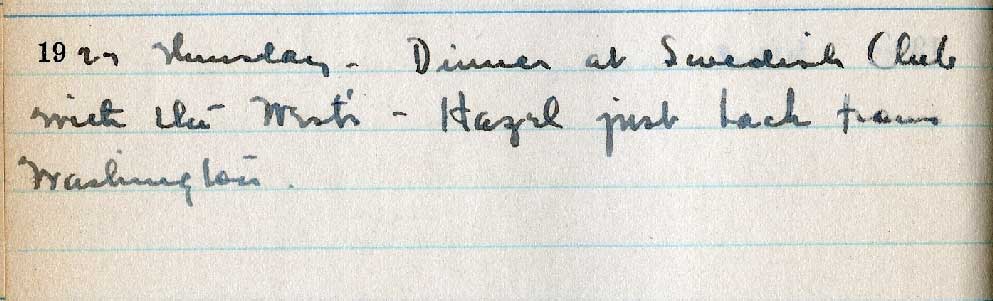 1927 Thursday - Dinner at Swedish Club
with the West's - Hazel just back from
Washington.